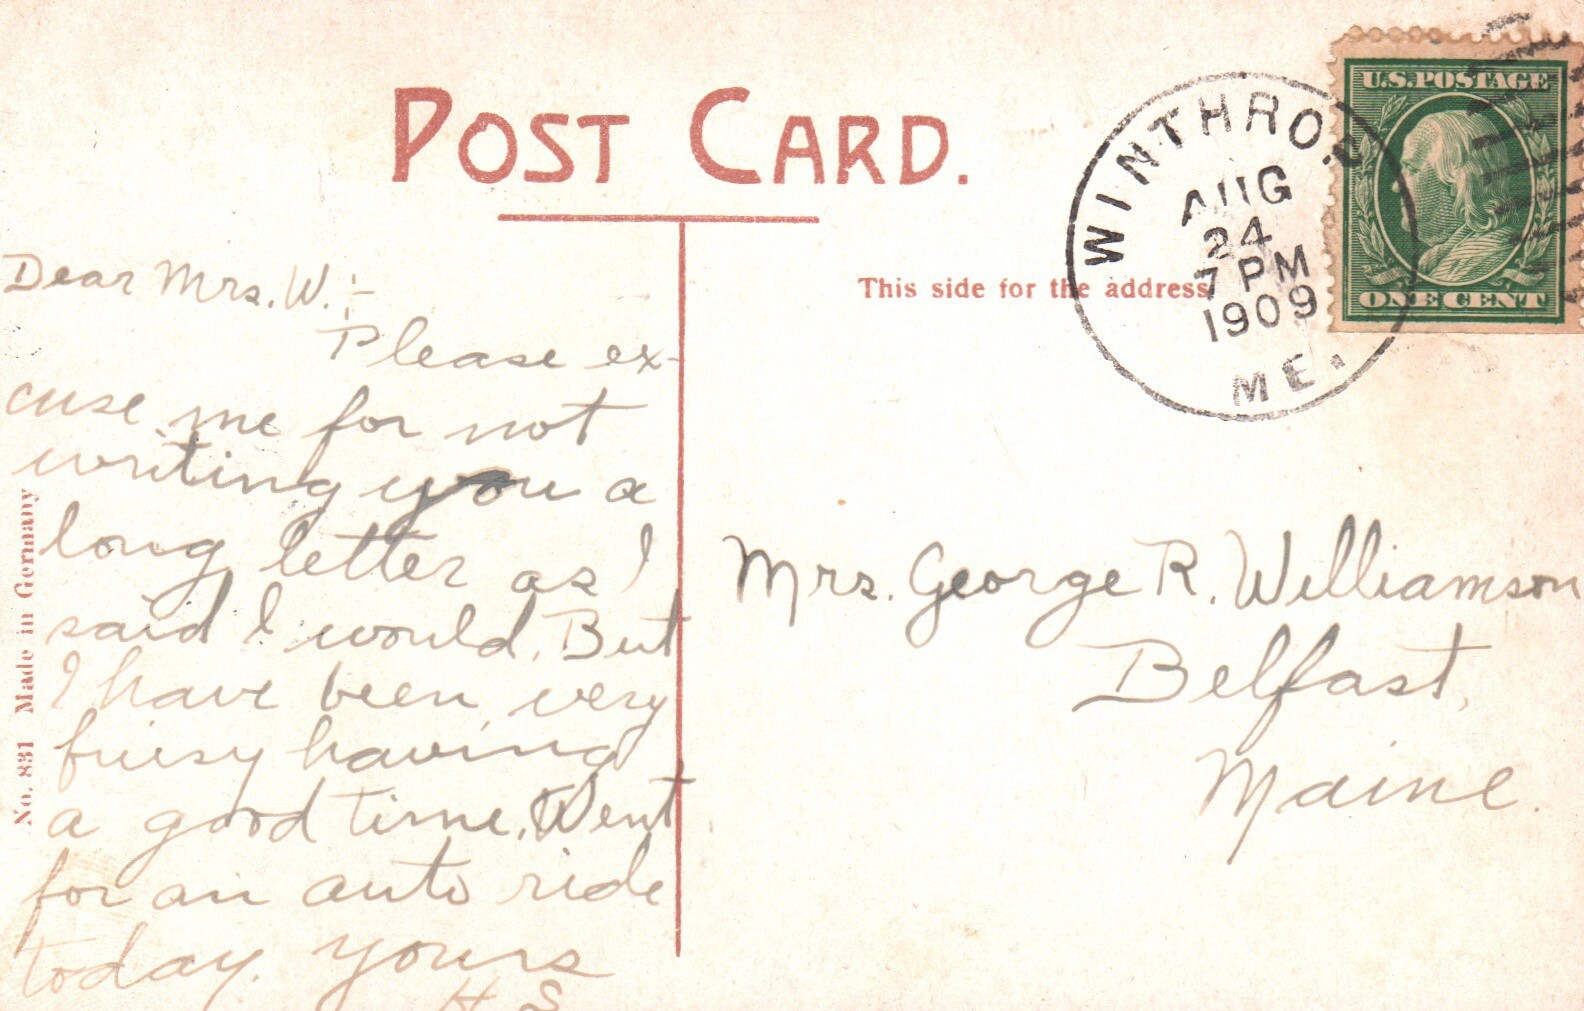 POST CARD.
This side for the address
WINTHROP
AUG
24
7 PM
1909
ME.
U.S. POSTAGE
ONE CENT
Dear Mrs. W.:-
Please ex-
cuse me for not
writing you a
long letter as I
said I would. But
I have been very
buisy having
a good time. Went
for an auto ride
today. yours
H. S
Mrs. George R. Williamson
Belfast,
Maine.
No. 831 Made in Germany